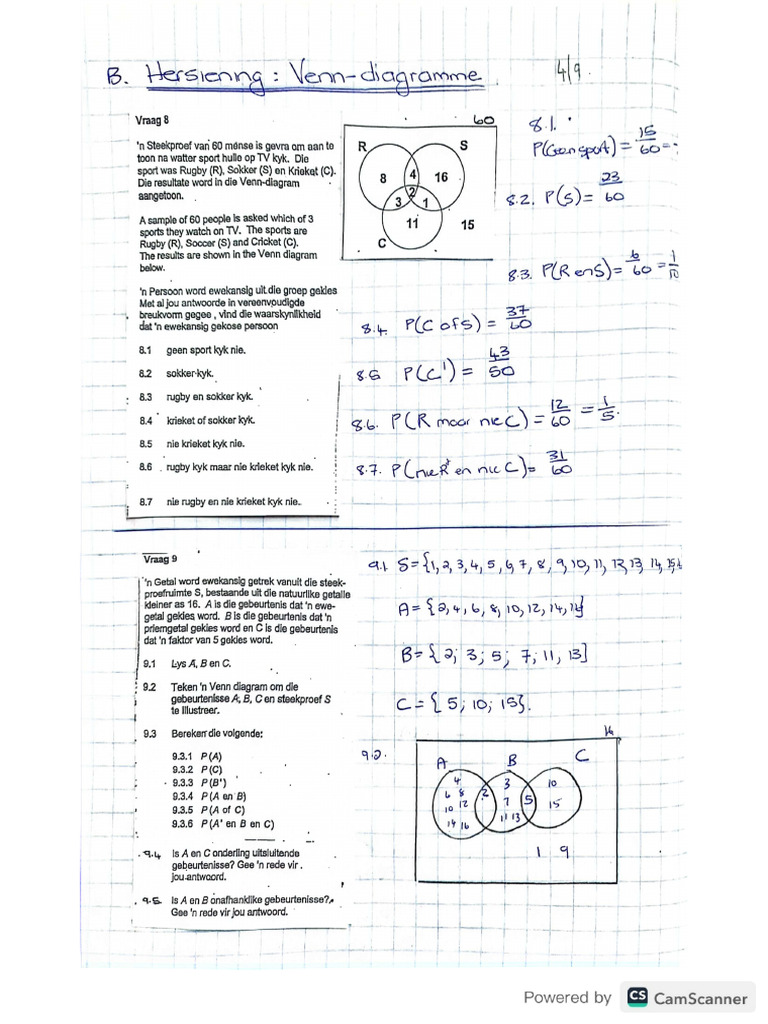 B. Hersiening : Venn-diagramme
4/9.
Vraag 8
'n Steekproef van 60 mense is gevra om aan te
toon na watter sport hulle op TV kyk. Die
sport was Rugby (R), Sokker (S) en Krieket (C).
Die resultate word in die Venn-diagram
aangetoon.
A sample of 60 people is asked which of 3
sports they watch on TV. The sports are
Rugby (R), Soccer (S) and Cricket (C).
The results are shown in the Venn diagram
below.
'n Persoon word ewekansig uit die groep gekies
Met al jou antwoorde in vereenvoudigde
breukvorm gegee, vind die waarskynlikheid
dat 'n ewekansig gekose persoon
8.1 geen sport kyk nie.
8.2 sokker kyk.
8.3 rugby en sokker kyk.
8.4 krieket of sokker kyk.
8.5 nie krieket kyk nie.
8.6 rugby kyk maar nie krieket kyk nie.
8.7 nie rugby en nie krieket kyk nie.
60
R S
8 4 16
2
3 1
11 15
C
8.1.
P(Geen sport) = 15/60 =
8.2. P(S) = 23/60
8.3. P(R en S) = 6/60 = 1/10
8.4. P(C of S) = 37/60
8.5 P(C') = 43/50
8.6. P(R maar nie C) = 12/60 = 1/5.
8.7. P(nie R en nie C) = 31/60
Vraag 9
'n Getal word ewekansig getrek vanuit die steek-
proefruimte S, bestaande uit die natuurlike getalle
kleiner as 16. A is die gebeurtenis dat 'n ewe-
getal gekies word. B is die gebeurtenis dat 'n
priemgetal gekies word en C is die gebeurtenis
dat 'n faktor van 5 gekies word.
9.1 Lys A, B en C.
9.2 Teken 'n Venn diagram om die
gebeurtenisse A, B, C en steekproef S
te illustreer.
9.3 Bereken die volgende:
9.3.1 P(A)
9.3.2 P(C)
9.3.3 P(B')
9.3.4 P(A en B)
9.3.5 P(A of C)
9.3.6 P(A' en B en C)
9.4 Is A en C onderling uitsluitende
gebeurtenisse? Gee 'n rede vir
jou antwoord.
9.5 Is A en B onafhanklike gebeurtenisse?
Gee 'n rede vir jou antwoord.
9.1 S={1,2,3,4,5,6,7,8,9,10,11,12,13,14,15
A={2,4,6,8,10,12,14,
B={2; 3; 5; 7; 11, 13]
C={5; 10; 15}.
9.2.
A B C
4 3 10
6 8 2 7 5 15
10 12 11 13
14 16
1 9
Powered by CS CamScanner